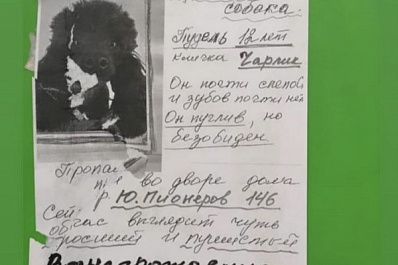 собака.
Пудель 12 лет
кличка Чарлик
Он почти слепой
и зубов почти не
Он пуглив, но
безобиден
Пропа
во дворе дома
р. Ю. Пионеров 146
Сей час выглядит чуть
обросший и пушистый